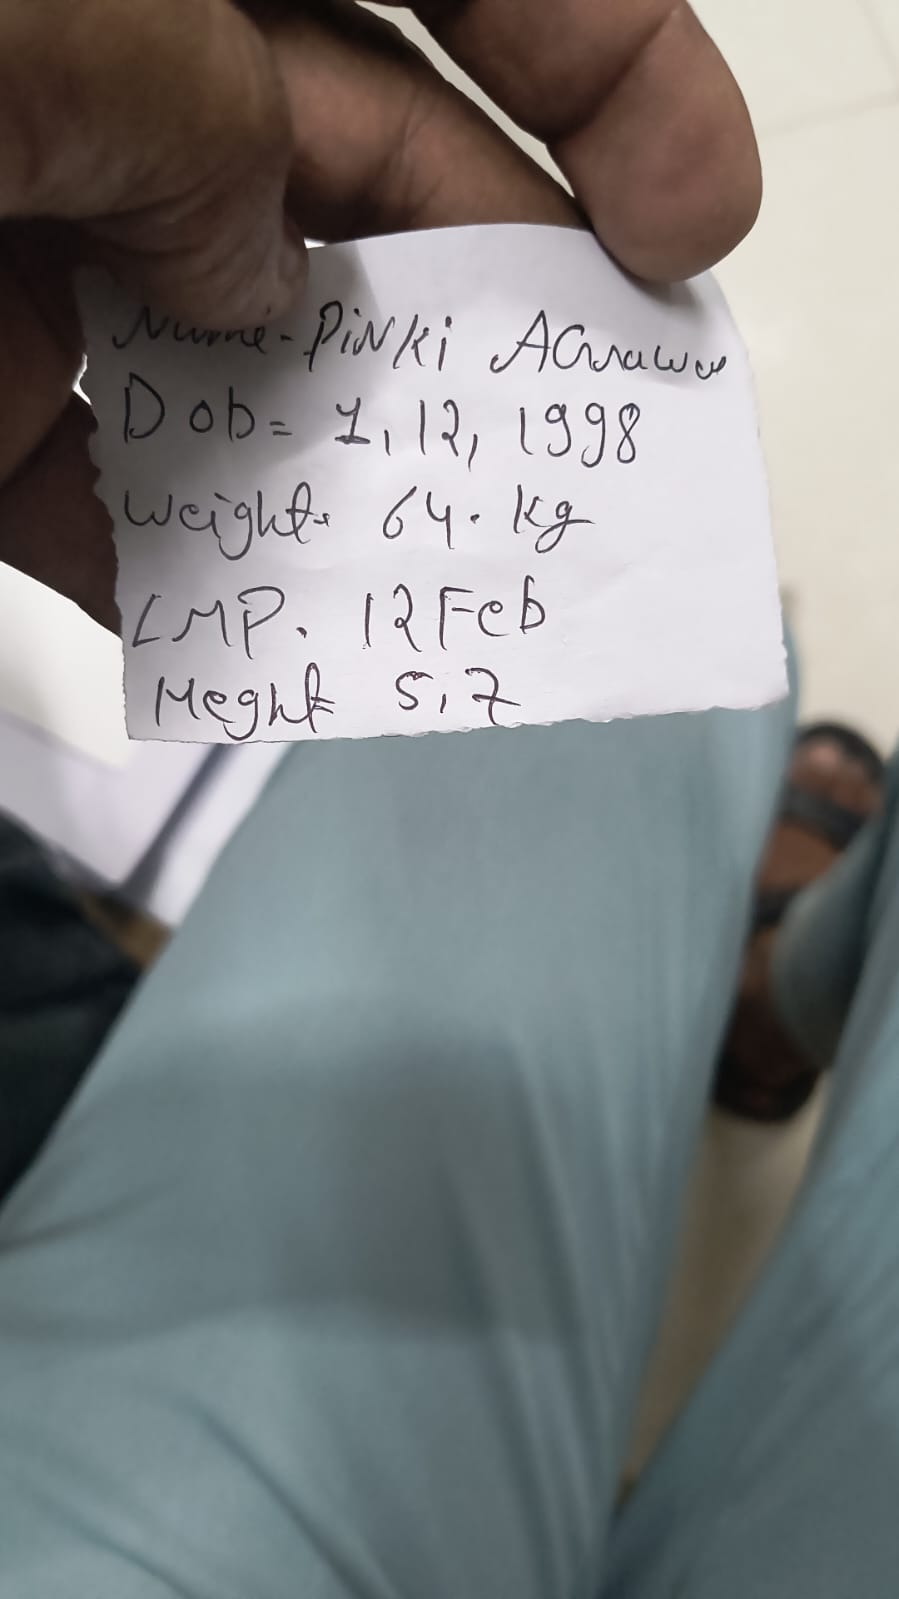 Name - PiNki
Dob = 1, 12, 1998
Weight. 64. kg
LMP. 12 Feb
Heght 5,7